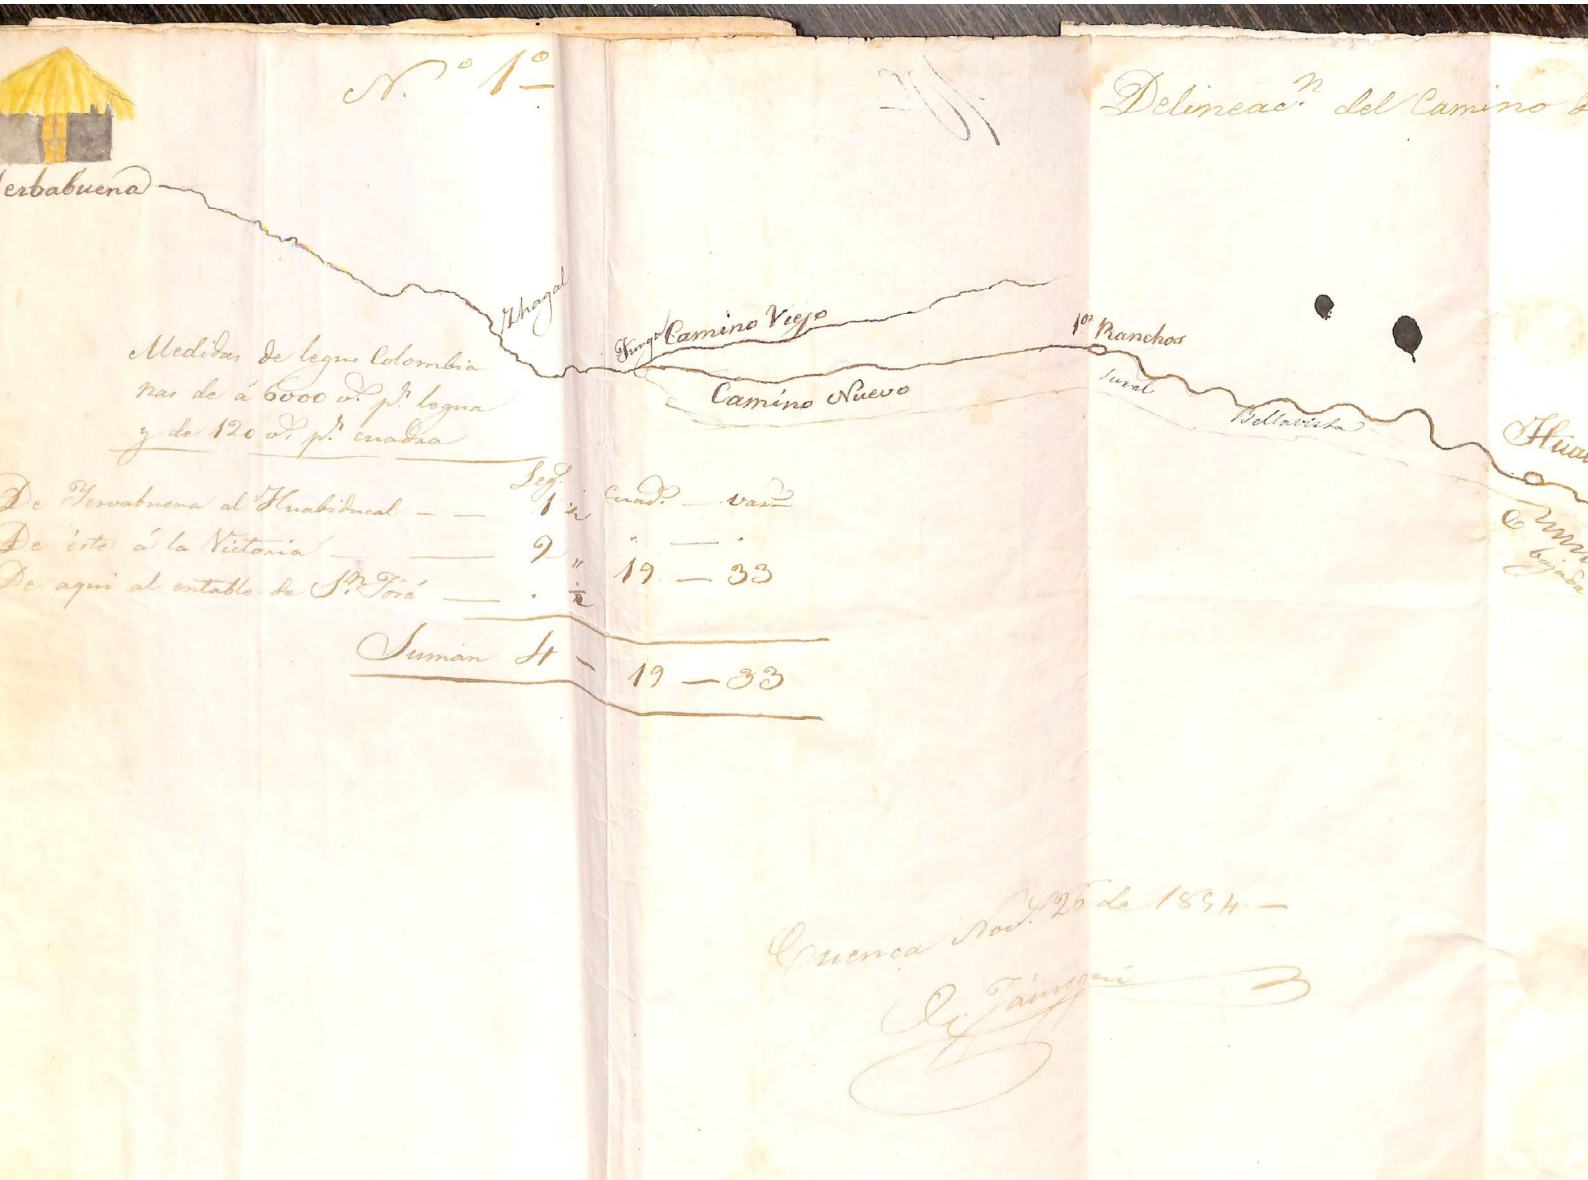 N.º 1º
Delineac.n del Camino
erbabuena
Zhagal
Camino Viejo
Camino Nuevo
1os Ranchos
Sural
Bellavista
Hua
bajada
Medidas de legus Colombia
nas de á 6000 v.s p.r legua
y de 120 v.s p.r cuadra
Leg.s cuad.s — var.s
De Yervabuena al Huabiducal — — 1 ½ " — "
De éste á la Victoria — — 2 " 19 — 33
De aqui al entable de S.n José — . ½
Suman 4 — 19 — 33
Cuenca Nov.e 26 de 1854. —